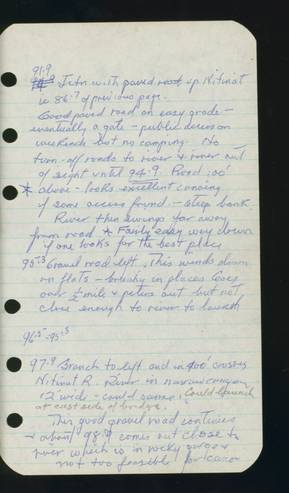 91.9
Jctn with paved road up Nitinat
is 86.7 of previous page.
Good paved road on easy grade -
eventually a gate - public access on
weekends but no camping. No
turn-off roads to river & river out
of sight until 94.9. Road 100'
* above - looks excellent canoeing
if some access found. - steep bank.
River then swings far away
from road * Fairly easy way down
if one looks for the best place
95.3 Gravel road left. This winds down
on flats - brushy in places. Goes
over ½ mile & peters out but not
close enough to river to launch
96.5 - 95.5
97.9 Branch to left and in 400' crosses
Nitinat R. River in narrow canyon
12 wide - could canoe. Could launch
at east side of bridge.
This good gravel road continues
& about 98.9 comes out close to
river which is in rocky
not too feasible for canoe